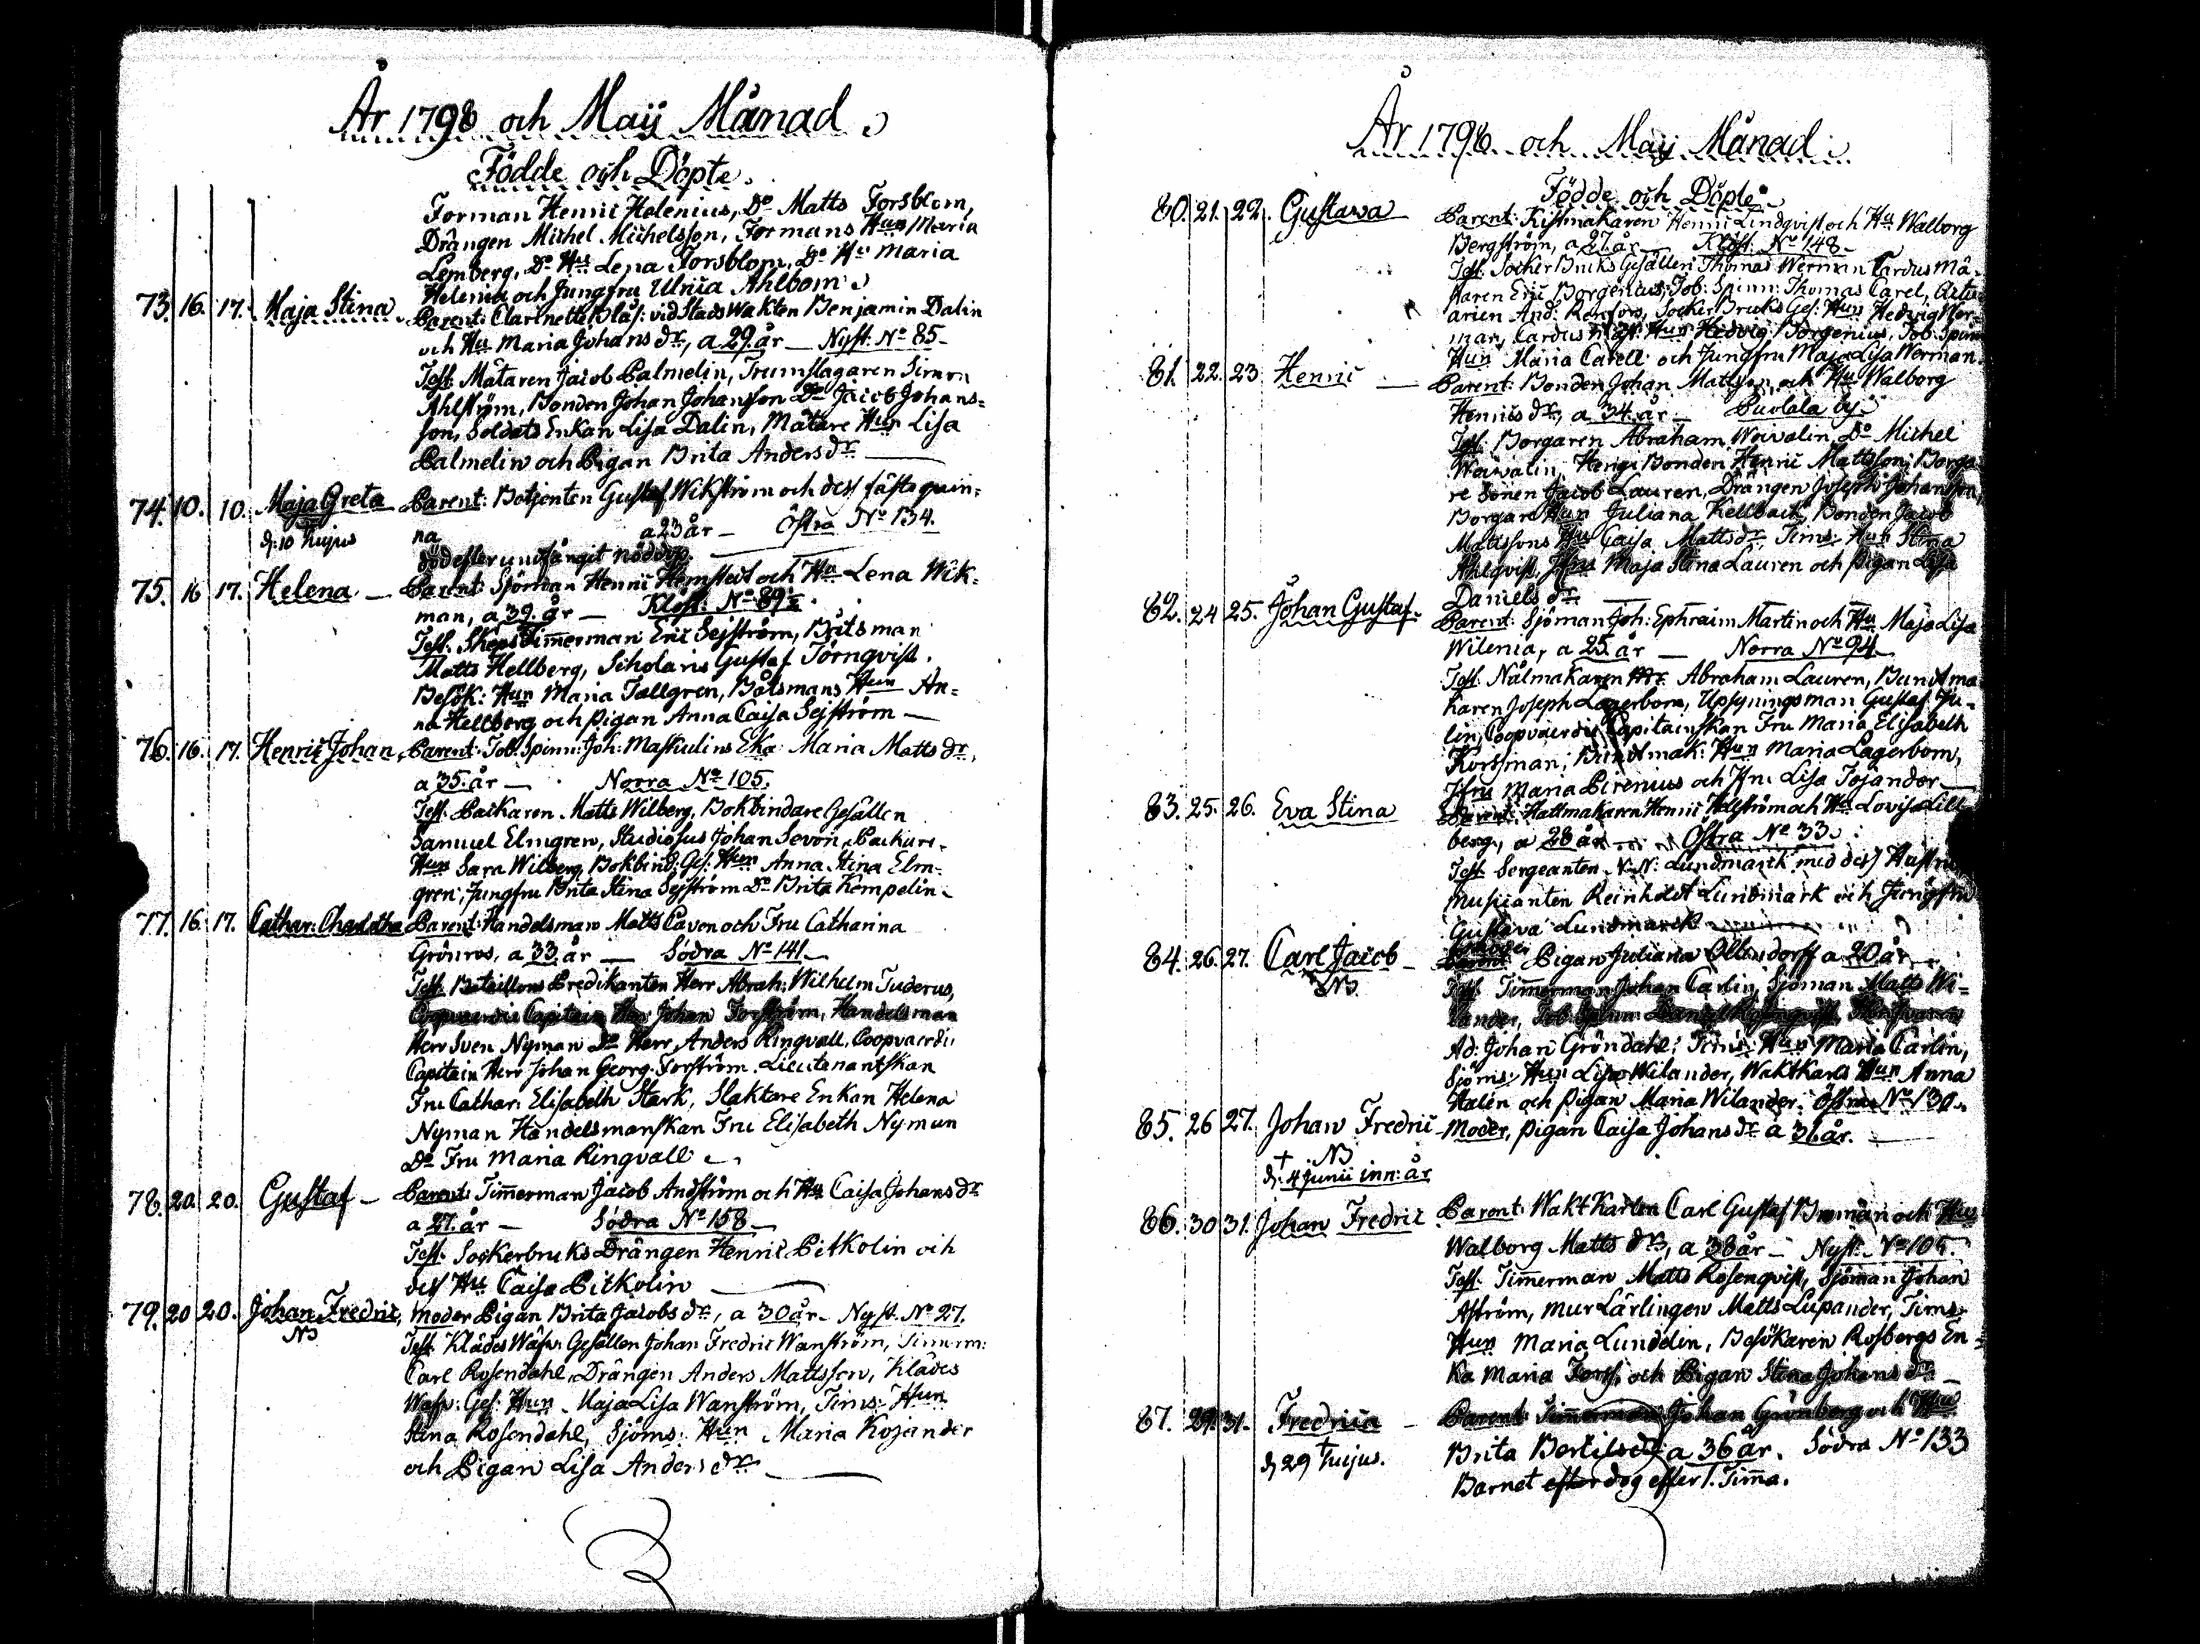 År 1798 och Maij Månad
Födde och Döpte
Forman Henric Helenius, Do Matts Forsblom,
Drängen Michel Michelsson, Formans Hun Maria
Lemberg, Do Hu Lena Forsblom, Do Hu Maria
Helenia och Jungfru Ulrica Ahlbom
73. 16. 17. Maja Stina Parent: Clarinette Blås: vid Stads Wakten Benjamin Dalin
och Hu Maria Johans dr, a 29 år — Nyst: No 85 —
Test: Mätaren Jacob Palmelin, Trumslagaren Simon
Ahlström, Bonden Johan Johansson Do Jacob Johans=
son, Soldats Enkan Lisa Dalin, Mätare Hun Lisa
Palmelin och Pigan Brita Anders dr
74. 10. 10. Maja Greta Parent: Gustaf Wikström och dess fästeqvin=
d. 10 hujus na a 23 år — Östra No 134.
död efter undfångit nöddop.
75. 16 17. Helena — Parent: Sjöman Henric Hemstedt och Hu Lena Wik=
man, a 39 år — Klost: No 89
Test: Skeps Timmerman Eric Sejström, Båtsman
Matts Hellberg, Scholaris Gustaf Törnqvist.
Besök: Hun Maria Tallgren, Båtsmans Hun An=
na Hellberg och pigan Anna Caisa Sejström —
76. 16. 17. Henric Johan, Parent: Tob: Spinn: Joh: Maskulins Eka Maria Matts dr,
a 35 år — Norra No 105.
Test: Matts Wilberg, Bokbindare Gesällen
Samuel Elmgren, Studiosus Johan Sevon,
Hun Sara Wilberg, Bokbind: Ges: Hun Anna Stina Elm=
gren, Jungfru Brita Stina Sejström Do Brita Kempelin
77. 16. 17. Cathar: Charlotha Parent: Handelsman Matts Paven och Fru Catharina
Grönros, a 33 år — Södra No 141
Test: Bataillons Predikanten Herr Abrah: Wilhelm Tuderus,
Coopvaerdie Capitain Herr Johan Forström, Handelsman
Herr Sven Nyman Do Herr Anders Ringvall, Coopvaerdie
Capitain Herr Johan Georg Forström. Lieutenantskan
Fru Cathar: Elisabeth Stark, Slaktare Enkan Helena
Nyman Handelsmanskan Fru Elisabeth Nyman
Do Fru Maria Ringvall
78. 20. 20. Gustaf — Parent: Timmerman Jacob Andström och Hu Caisa Johans dr
a 27 år — Södra No 158 —
Test: Sockerbruks Drängen Henric Pitkolin och
dess Hu Caisa Pitkolin
79. 20 20. Johan Fredric, Moder Pigan Brita Jacobs dr, a 30 år — Nyst. No 27.
NB Test: Klädes Wäfv: Gesällen Johan Fredric Wanström, Timmerm:
Carl Rosendahl, Drängen Anders Mattsson, Klädes
Wäfv: Ges: Hun Maja Lisa Wanström, Tims: Hun
Stina Rosendahl, Sjöms: Hun Maria Kojander
och Pigan Lisa Anders dr
År 1798 och Maij Månad
Födde och Döpte
80. 21. 22. Gustava Parent: Kistmakaren Henric Lindqvist och Hu Walborg
Bergström, a 27 år — Klost. No 148 —
Test: Socker Bruks Gesällen Thomas Werman Cardus ma=
karen Eric Borgenius, Tob: Spinn: Thomas Carel,
And: Renfors, Socker Bruks Ges: Hun Hedvig Wer=
man, Cardus Mak: Hun Hedvig Borgenius, Tob: Spinn
Hun Maria Carell och Jungfru Maja Lisa Werman
81. 22. 23 Henric — Parent: Bonden Johan Mattsson och Hu Walborg
Henrics dr, a 34 år — by
Test: Borgaren Abraham Woivalin, Do Michel
Woivalin, Bonden Henric Mattsson, Borga=
re Sonen Jacob Lauren, Drängen Joseph Johansson,
Borgare Hun Juliana Kellback, Bonden Jacob
Mattssons Hu Caisa Matts dr, Tims: Hun Stina
Ahlqvist, Jfru Maja Stina Lauren och Pigan Lisa
Daniels dr
82. 24 25. Johan Gustaf Parent: Sjöman Joh: Ephraim Martin och Hu Maja Lisa
Wilenia, a 25 år — Norra No 94
Test: Nålmakaren Mr Abraham Lauren, Buntma
karen Joseph Lagerbom, Upsyningsman Gustaf Ju=
lin, Coopvaerdie Capitainskan Fru Maria Elisabeth
Korsman, Buntmak: Hun Maria Lagerbom,
Jfru Maria Pirenius och Jfru Lisa Tojander —
83. 25. 26. Eva Stina Parent: Hattmakaren Henric och Hu Lovisa Lill
berg, a 28 år Östra No 33
Test: Sergeanten N: N: Lundmarck med dess Hustru
Musicanten Reinholdt Lundmark och Jungfru
Gustava Lundmarck
84. 26. 27. Carl Jacob — Pigan Juliana Ollendorff a 20 år
NB Test: Timmerman Johan Carlin, Sjöman Matts Wi=
lander,
Ad: Johan Gröndahl, Tims: Hun Maria Carlin,
Sjöms: Hun Lisa Wilander, Waktkarls Hun Anna
Halin och pigan Maria Wilander. Östra No 130.
85. 26 27. Johan Fredric Moder, pigan Caisa Johans dr a 36 år.
† NB
d. 4 Junii inn: år
86. 30 31. Johan Fredric Parent: Wakt Karlen Carl Gustaf och Hu
Walborg Matts dr, a 38 år — Nyst. No 105.
Test: Timmerman Matts Rosenqvist, Sjöman Johan
Aström, Mur Lärlingen Matts Lupander, Tims
Hun Maria Lundelin, Besökaren Rosbergs En=
ka Maria Forss och Pigan Stina Johans dr —
87. 29. 31. Fredrica — Parent: Timmerman Johan Grönberg och Hu
† d. 29 hujus. Brita Bertils dr a 36 år. Södra No 133
Barnet efter dog efter 1. Timma.